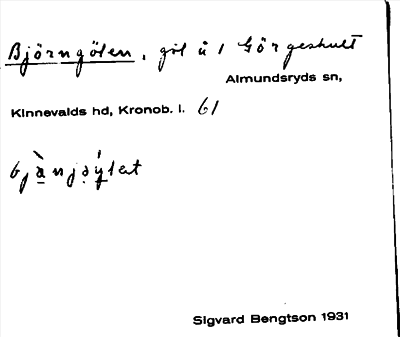 Björngölen, göl å 1 Görgeshult
Almundsryds sn,
Kinnevalds hd, Kronob. l. 61
Sigvard Bengtson 1931